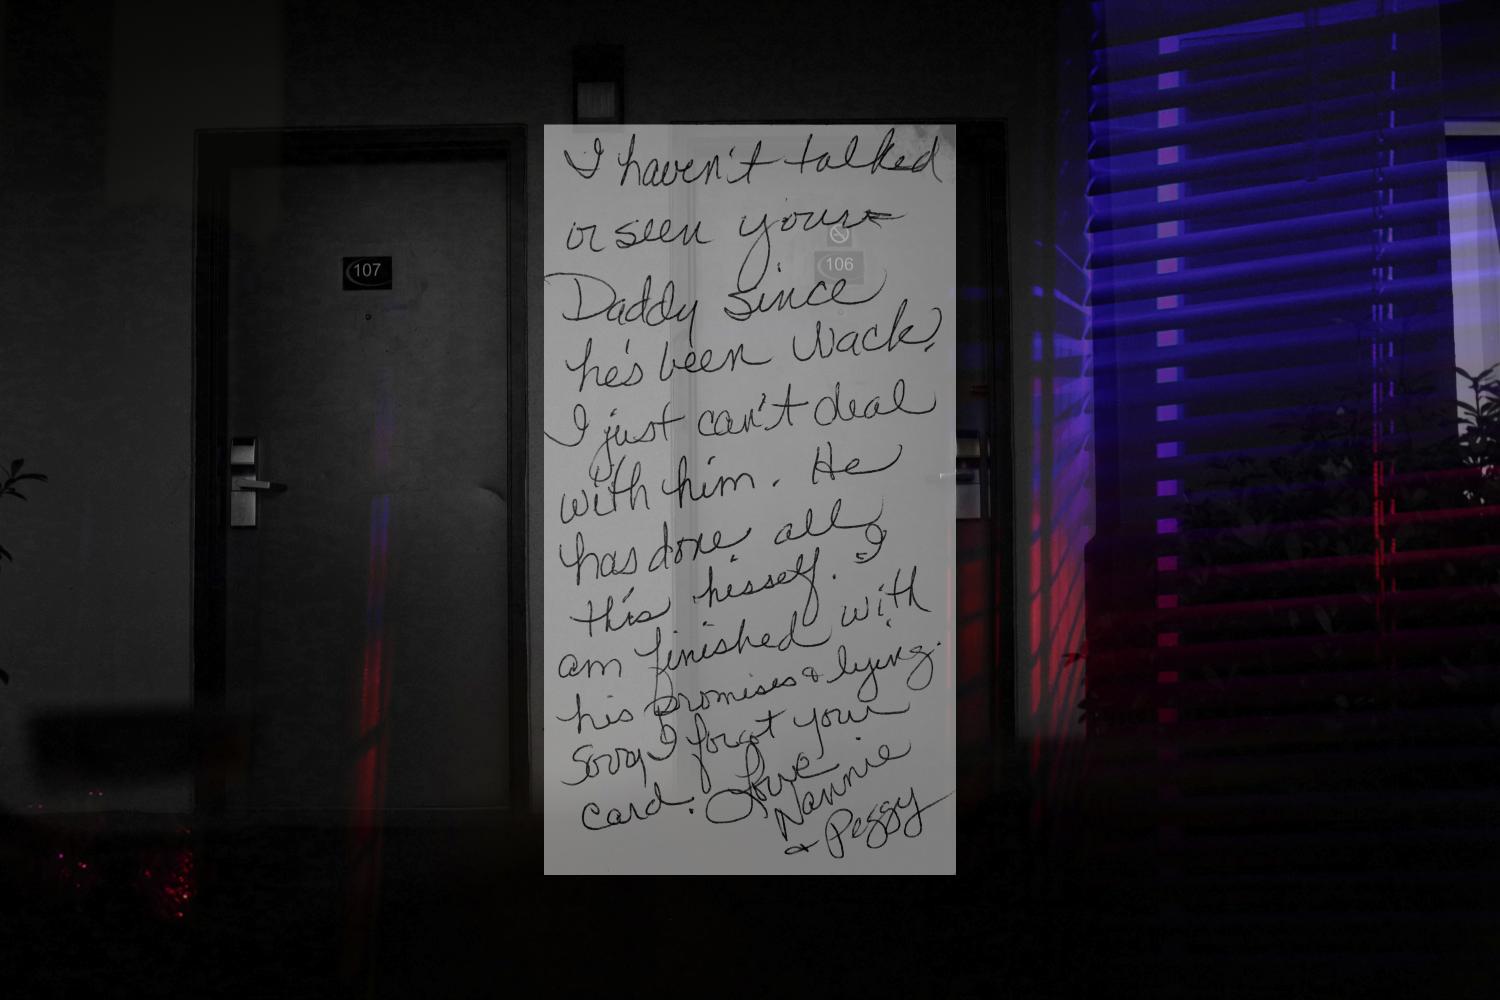 107
106
I haven't talked
or seen your
Daddy since
he's been back.
I just can't deal
with him. He
has done all
this hisself. I
am finished with
his promises & lying.
Sorry I forgot your
card. Love
Nannie
& Peggy